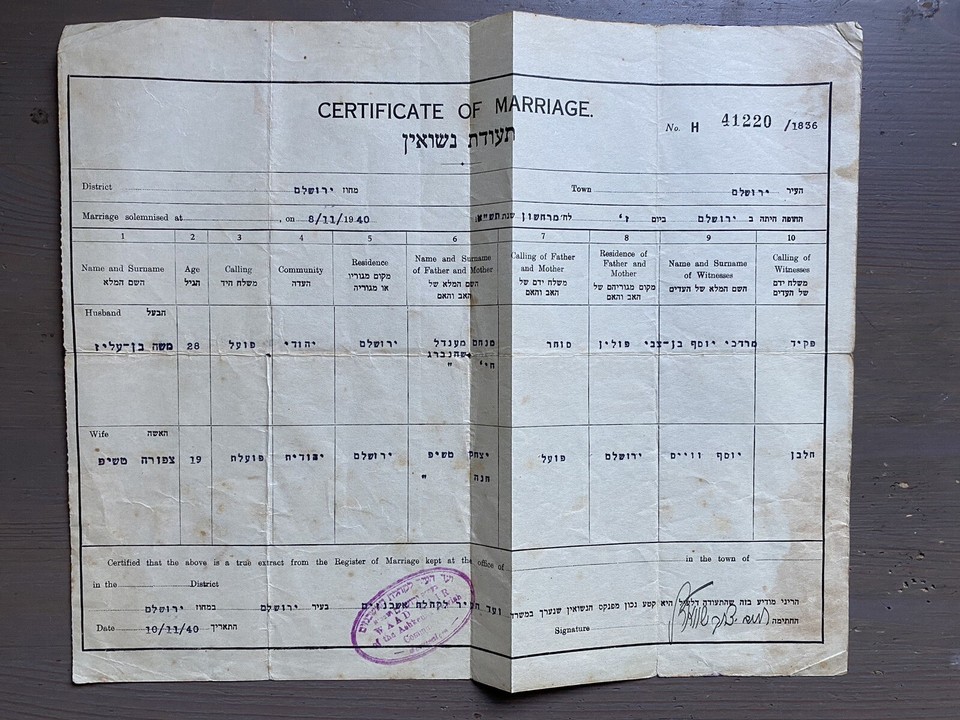 CERTIFICATE OF MARRIAGE.
תעודת נשואין
No. H 41220 /1836
District ירושלם מחוז Town ירושלם העיר
Marriage solemnised at , on 8/11/1940 לח' מרחשון שנת תש"א ביום ו' החופה היתה ב ירושלם
1 2 3 4 5 6 7 8 9 10
Name and Surname
השם המלא
Age
הגיל
Calling
משלח היד
Community
העדה
Residence
מקום מגוריו
או מגוריה
Name and Surname
of Father and Mother
השם המלא של
האב והאם
Calling of Father
and Mother
משלח ידם של
האב והאם
Residence of
Father and
Mother
מקום מגוריהם של
האב והאם
Name and Surname
of Witnesses
השם המלא של העדים
Calling of
Witnesses
משלח ידם
של העדים
Husband הבעל
משה בן-עליז
28
פועל
יהודי
ירושלם
מנחם מענדל
חי' "
סוחר
פולין
מרדכי יוסף בן-צבי
פקיד
Wife האשה
צפורה משיפ
19
פועלת
יהודית
ירושלם
יצחק משיפ
חנה "
פועל
ירושלם
יוסף ווייס
חלבן
Certified that the above is a true extract from the Register of Marriage kept at the office of in the town of
in the District
הריני מודיע בזה שהתעודה דלעיל היא קטע נכון מפנקס הנשואין שנערך במשרד ועד העיר לקהלת אשכנזים בעיר ירושלם במחוז ירושלם
Date 10/11/40 התאריך
Signature החתימה
WAAD HAIR
of the Ashkenazi Jewish